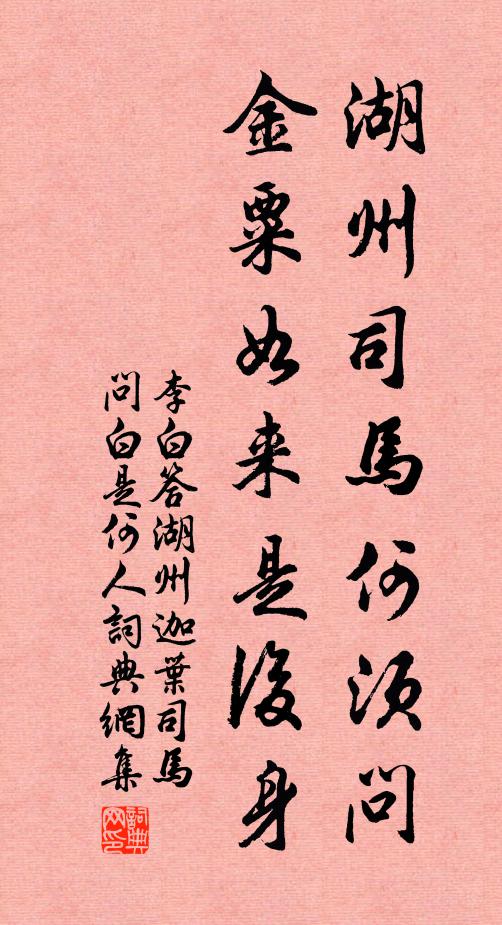 湖州司馬何須問
金粟如来是後身
李白答湖州迦葉司馬
問白是何人詞典網集
詞典网印